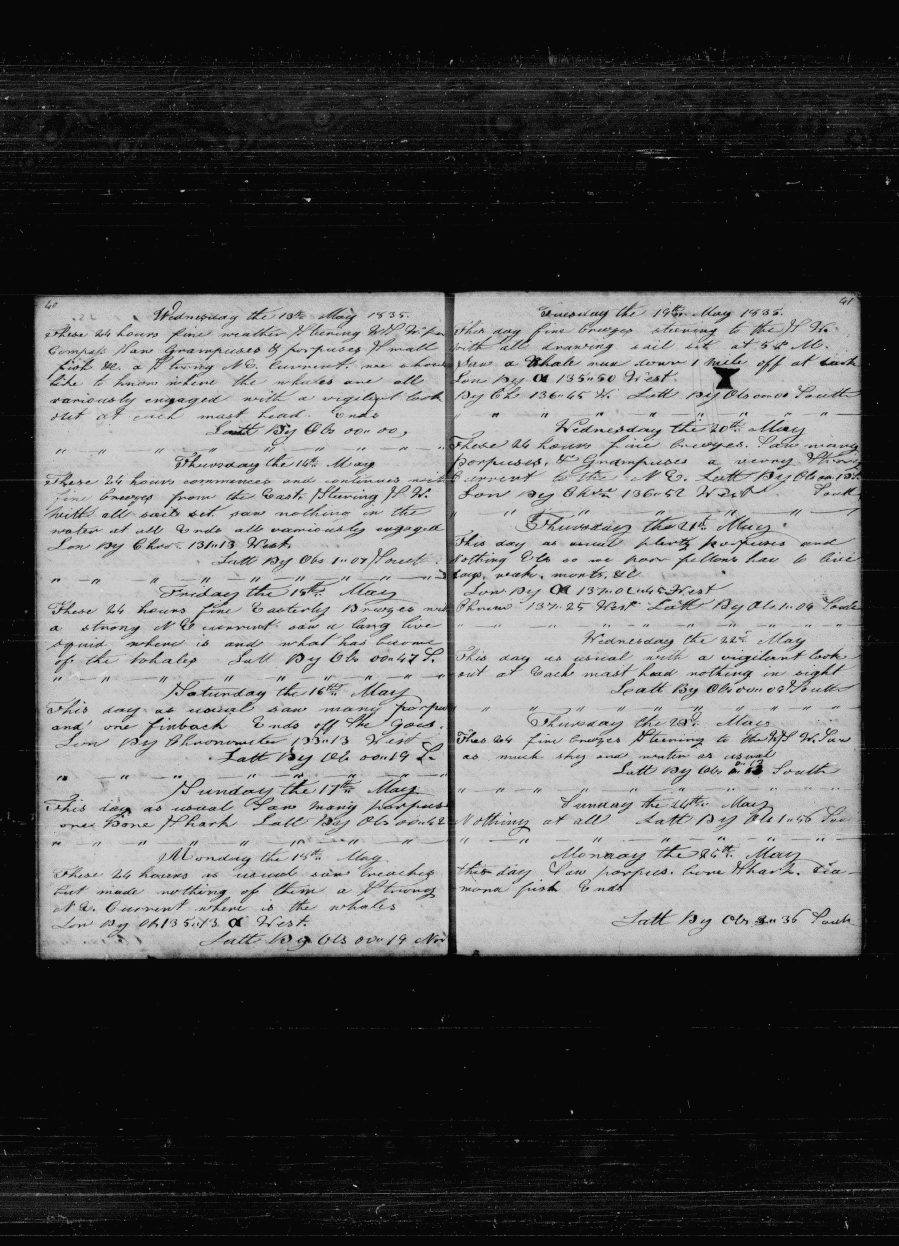 40
Wednesday the 13th May 1835.
These 24 hours fine weather Stering
Compas Saw Grampuses & porpuses Small
fish &c. a Strong N.E. Current. we should
like to know where the whales are all
variously engaged with a vigilent look
out at each mast head. Ends
Latt By Obs 00 00,
Thursday the 14th May
These 24 hours commences and continues with
fine breezes from the East Stering S. W.
With all sails set saw nothing in the
water at all Ends all variously engaged
Lon By Chro 131 13 West
Latt By Obs 1 07 South
Friday the 15th May
These 24 hours fine Easterly Brezes
a strong N E current saw a lang live
squid where is and what has become
of the Whales Latt By Obs 00 47 S.
Saturday the 16th May
This day as usual saw many porpus
and one finback Ends off She Goes.
Lon By Chronometer 133 13 West
Latt By Obs 00 19 S.
Sunday the 17th May
This day as usual Saw many porpus
one Bone Shark Latt By Obs 00 42
Monday the 18th May
These 24 hours as usual saw breaches
but made nothing of them a Strong
N.E. Current where is the whales
Lon By Ch 135 13 West.
Latt By Obs 00 14 Nor
41
Tuesday the 19th May 1835.
This day fine brezes steering to the S W
with all drawing sail set at 5 P. M.
Saw a Whale run down 1 Mile off at Dark
Lon By 135 50 West.
By Chr 136 45 W. Latt By Obs 00 01 South
Wednesday the 20th May
These 24 hours fine brezes. Saw many
porpuses, & Grampuses a verry Strong
Current to the N E. Latt By Obs
Lon By Chr 136 52 West South
Thursday the 21st May
This day as usual plenty porpuses and
nothing Els so we poor fellows has to live
day, week, month, &c
Lon By 137 01 45 West
Chrom 137 25 West Latt By Obs 1 04 South
Wednesday the 22d May
This day as usual with a vigilent look
out at Each mast head nothing in sight
Latt By Obs 00 04 South
Thursday the 23d May
Thes 24 fine brezes Stering to the W S W. Saw
as much sky and water as usual
Latt By Obs South
Sunday the 24th May
Nothing at all Latt By Obs 1 56 Sou
Monday the 25th May
this day Saw porpus. bone Shark. Dia-
mond fish Ends
Latt By Obs 36 South